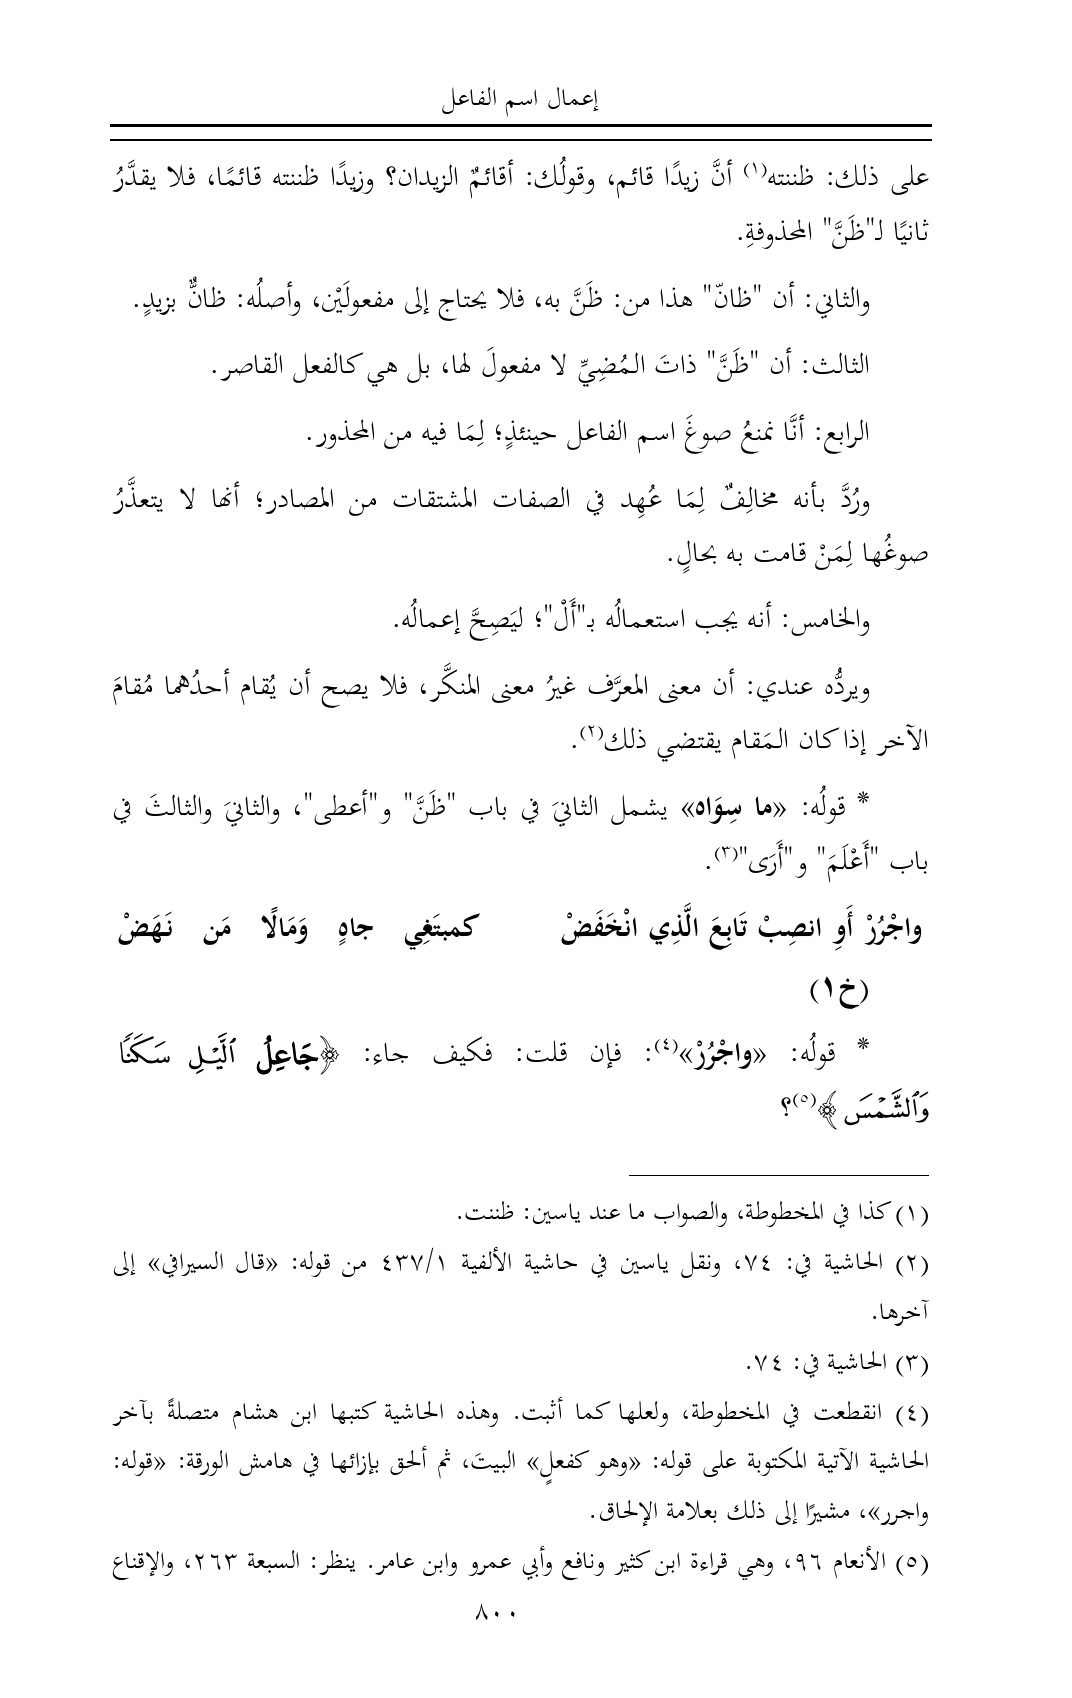 إعمال اسم الفاعل
على ذلك: ظننته(١) أنَّ زيدًا قائم، وقولُك: أقائمٌ الزيدان؟ وزيدًا ظننته قائمًا، فلا يقدَّرُ
ثانيًا لـ"ظَنَّ" المحذوفةِ.
والثاني: أن "ظانّ" هذا من: ظَنَّ به، فلا يحتاج إلى مفعولَيْن، وأصلُه: ظانٌّ بزيدٍ.
الثالث: أن "ظَنَّ" ذاتَ المُضِيِّ لا مفعولَ لها، بل هي كالفعل القاصر.
الرابع: أنَّا نمنعُ صوغَ اسم الفاعل حينئذٍ؛ لِمَا فيه من المحذور.
ورُدَّ بأنه مخالِفٌ لِمَا عُهِد في الصفات المشتقات من المصادر؛ أنها لا يتعذَّرُ
صوغُها لِمَنْ قامت به بحالٍ.
والخامس: أنه يجب استعمالُه بـ"أَلْ"؛ ليَصِحَّ إعمالُه.
ويردُّه عندي: أن معنى المعرَّف غيرُ معنى المنكَّر، فلا يصح أن يُقام أحدُهما مُقامَ
الآخر إذا كان المَقام يقتضي ذلك(٢).
* قولُه: «ما سِوَاه» يشمل الثانيَ في باب "ظَنَّ" و"أعطى"، والثانيَ والثالثَ في
باب "أَعْلَمَ" و"أَرَى"(٣).
واجْرُرْ أَوِ انصِبْ تَابِعَ الَّذِي انْخَفَضْ كمبتَغِي جاهٍ وَمَالًا مَن نَهَضْ
(خ١)
* قولُه: «واجْرُرْ»(٤): فإن قلت: فكيف جاء: ﴿جَاعِلُ ٱلَّيْلِ سَكَنًا
وَٱلشَّمْسَ﴾(٥)؟
(١) كذا في المخطوطة، والصواب ما عند ياسين: ظننت.
(٢) الحاشية في: ٧٤، ونقل ياسين في حاشية الألفية ٤٣٧/١ من قوله: «قال السيرافي» إلى
آخرها.
(٣) الحاشية في: ٧٤.
(٤) انقطعت في المخطوطة، ولعلها كما أثبت. وهذه الحاشية كتبها ابن هشام متصلةً بآخر
الحاشية الآتية المكتوبة على قوله: «وهو كفعلٍ» البيتَ، ثم ألحق بإزائها في هامش الورقة: «قوله:
واجرر»، مشيرًا إلى ذلك بعلامة الإلحاق.
(٥) الأنعام ٩٦، وهي قراءة ابن كثير ونافع وأبي عمرو وابن عامر. ينظر: السبعة ٢٦٣، والإقناع
٨٠٠